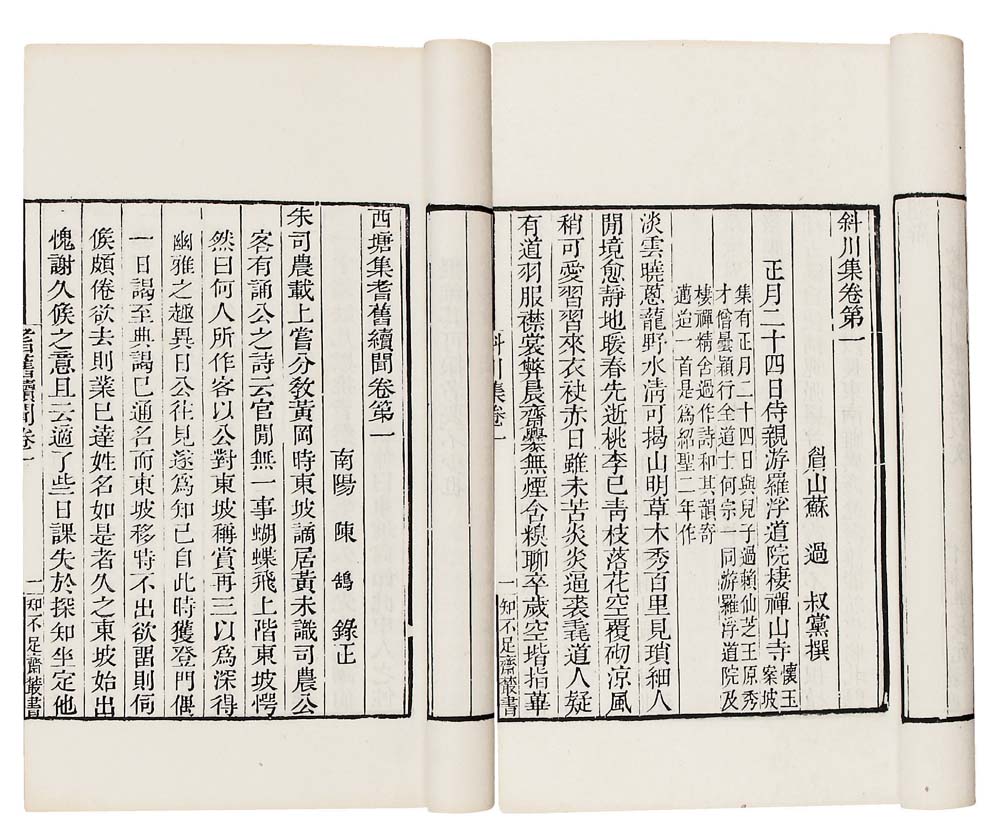 斜川集卷第一
眉山蘇　過　叔黨撰
正月二十四日侍親游羅浮道院棲禪山寺
懷玉
案坡
集有正月二十四日與兒子過賴仙芝王原秀
才僧曇穎行全道士何宗一同游羅浮道院及
棲禪精舍過作詩和其韻寄
邁迨一首是爲紹聖二年作
淡雲曉蔥蘢野水淸可揭山明草木秀百里見瑣細人
閒境愈靜地暖春先逝桃李已靑枝落花空覆砌涼風
稍可愛習習來衣袂赤日雖未苦炎炎逼裘毳道人疑
有道羽服襟裳弊晨齋爨無煙含糗聊卒歲空堦指華
斜川集卷一　一　知不足齋叢書
西塘集耆舊續聞卷第一
南陽　陳　鵠　錄正
朱司農載上嘗分敎黃岡時東坡謫居黃未識司農公
客有誦公之詩云官閒無一事蝴蝶飛上階東坡愕
然曰何人所作客以公對東坡稱賞再三以爲深得
幽雅之趣異日公往見遂爲知己自此時獲登門偶
一日謁至典謁已通名而東坡移時不出欲畱則伺
候頗倦欲去則業已達姓名如是者久之東坡始出
愧謝久候之意且云適了些日課失於探知坐定他
耆舊續聞卷一　一　知不足齋叢書